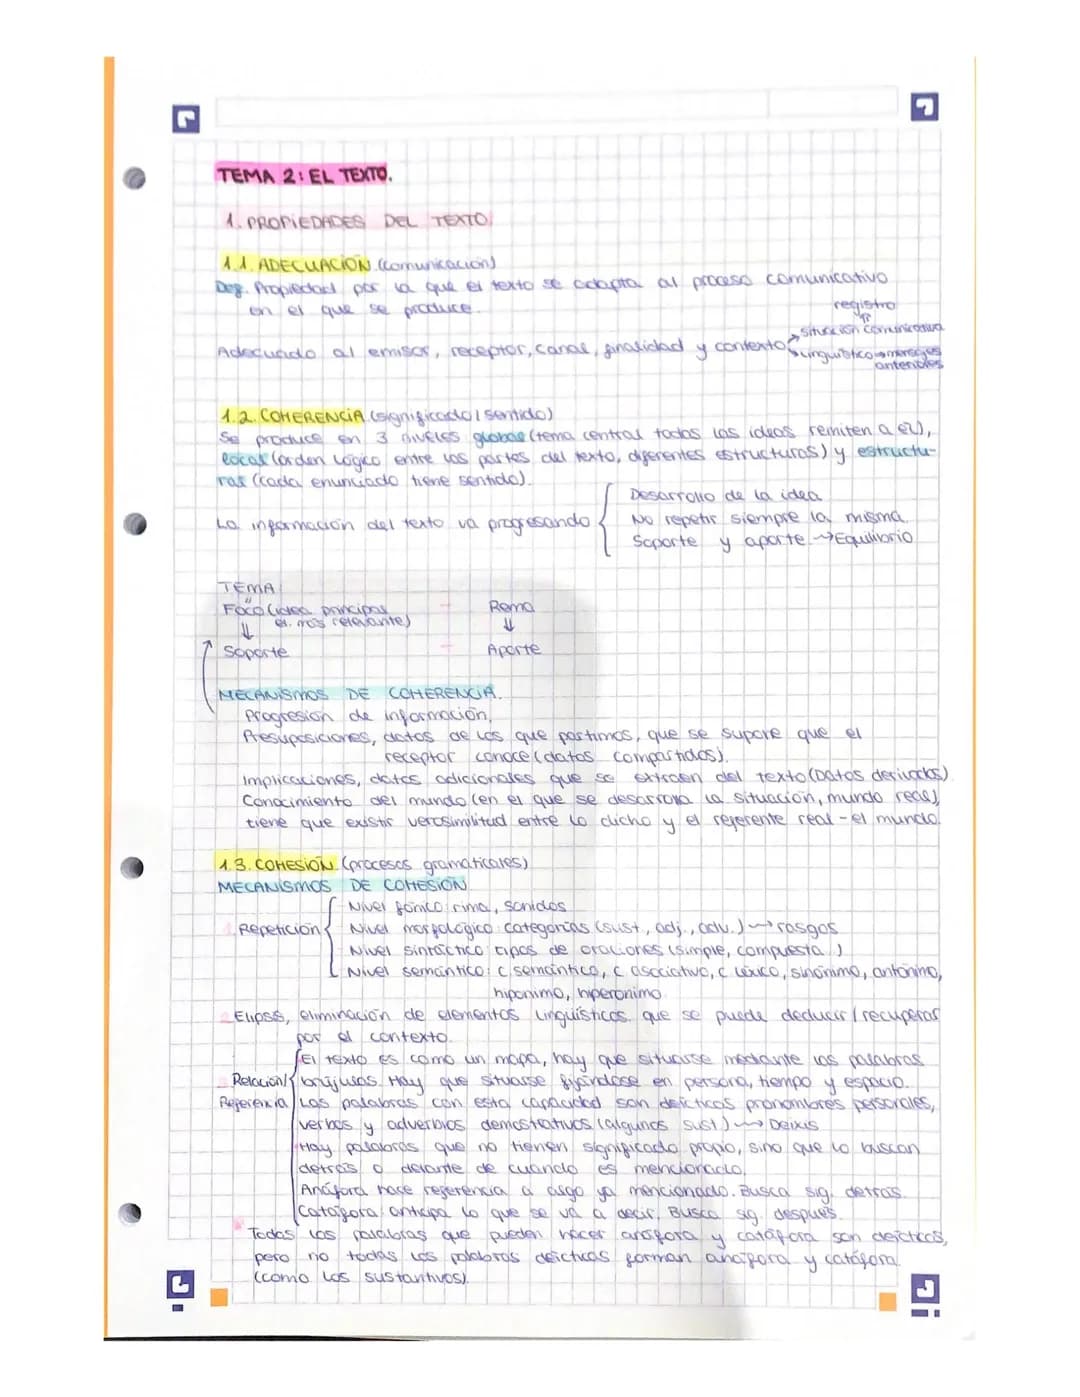 TEMA 2: EL TEXTO.
1. PROPIEDADES DEL TEXTO
1.1. ADECUACIÓN (comunicación)
Def. Propiedad por la que el texto se adapta al proceso comunicativo
en el que se produce.
registro
⇑
situación comunicativa
Adecuado al emisor, receptor, canal, finalidad y contexto
lingüístico → mensajes
anteriores
1.2. COHERENCIA (significado / sentido)
Se produce en 3 niveles global (tema central todas las ideas remiten a él),
local (orden lógico entre las partes del texto, diferentes estructuras) y estructu-
ral (cada enunciado tiene sentido).
Desarrollo de la idea
La información del texto va progresando { No repetir siempre la misma.
Soporte y aporte → Equilibrio
TEMA
"
Foco (idea principal - Rema
el más relevante)
⇓ ⇓
Soporte - Aporte
MECANISMOS DE COHERENCIA.
Progresión de información,
Presuposiciones, datos de los que partimos, que se supone que el
receptor conoce (datos compartidos).
Implicaciones, datos adicionales que se extraen del texto (Datos derivados)
Conocimiento del mundo (en el que se desarrolla la situación, mundo real)
tiene que existir verosimilitud entre lo dicho y el referente real - el mundo.
1.3. COHESIÓN (procesos gramaticales)
MECANISMOS DE COHESIÓN
Nivel fónico: rima, sonidos
Repetición { Nivel morfológico: categorías (sust., adj., adv.) → rasgos
Nivel sintáctico: tipos de oraciones (simple, compuesta..)
Nivel semántico: c semántico, c asociativo, c léxico, sinónimo, antónimo,
hipónimo, hiperónimo
Elipsis, eliminación de elementos lingüísticos que se puede deducir / recuperar
por el contexto.
El texto es como un mapa, hay que situarse mediante las palabras
Relación/ brújulas. Hay que situarse fijándose en persona, tiempo y espacio.
Referencia Las palabras con esta capacidad son deícticos pronombres personales,
verbos y adverbios demostrativos (algunos sust) → Deixis
Hay palabras que no tienen significado propio, sino que lo buscan
detrás o delante de cuando es mencionado.
Anáfora hace referencia a algo ya mencionado. Busca sig. detrás.
Catáfora: anticipa lo que se va a decir. Busca sig. después.
* Todas las palabras que pueden hacer anáfora y catáfora son deícticos,
pero no todas las palabras deícticas forman anáfora y catáfora.
(como los sustantivos)